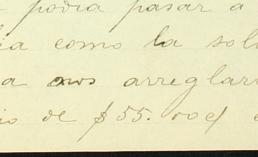 podia pasar a
ia como la sol
a nos arreglar
io de $55.00